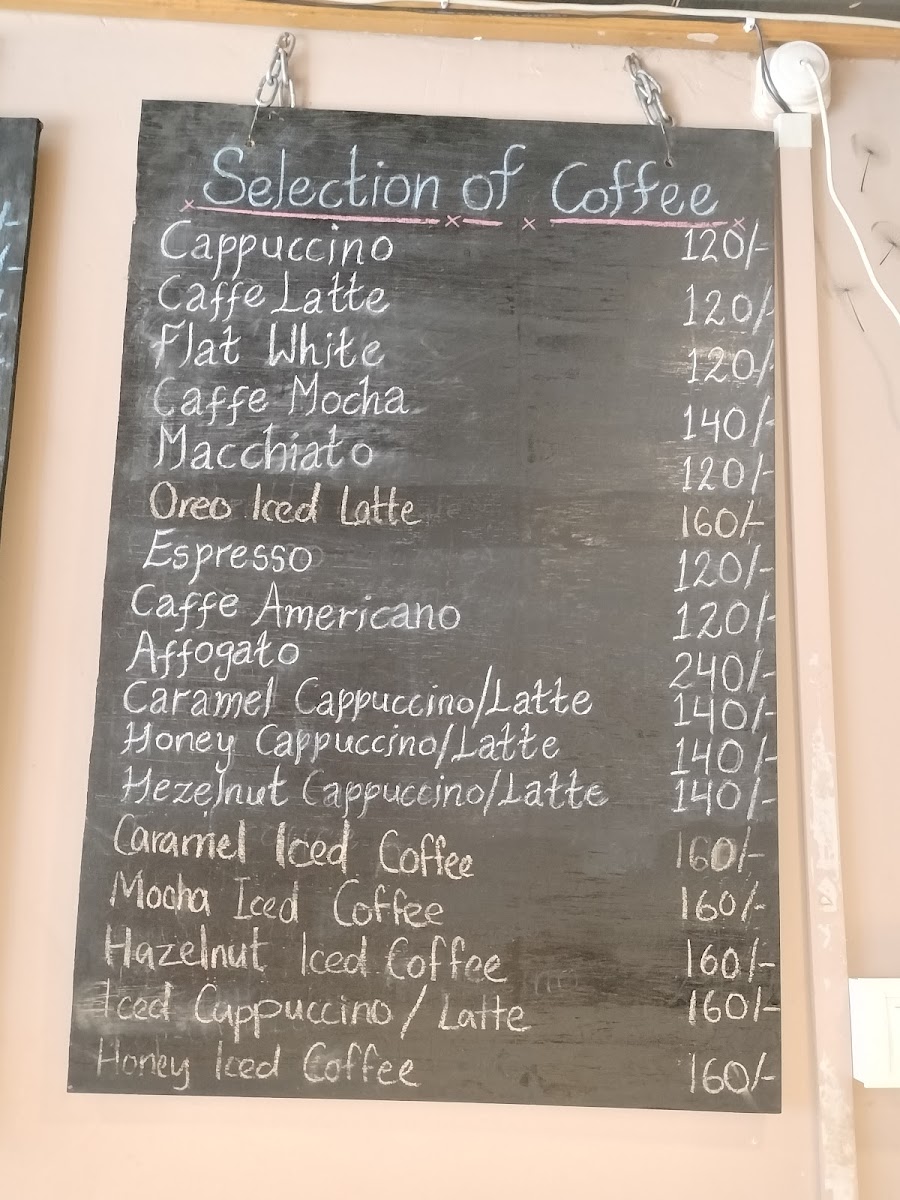 Selection of Coffee
Cappuccino 120/-
Caffe Latte 120/-
Flat White 120/-
Caffe Mocha 140/-
Macchiato 120/-
Oreo Iced Latte 160/-
Espresso 120/-
Caffe Americano 120/-
Affogato 240/-
Caramel Cappuccino/Latte 140/-
Honey Cappuccino/Latte 140/-
Hezelnut Cappuccino/Latte 140/-
Caramel Iced Coffee 160/-
Mocha Iced Coffee 160/-
Hazelnut Iced Coffee 160/-
Iced Cappuccino / Latte 160/-
Honey Iced Coffee 160/-